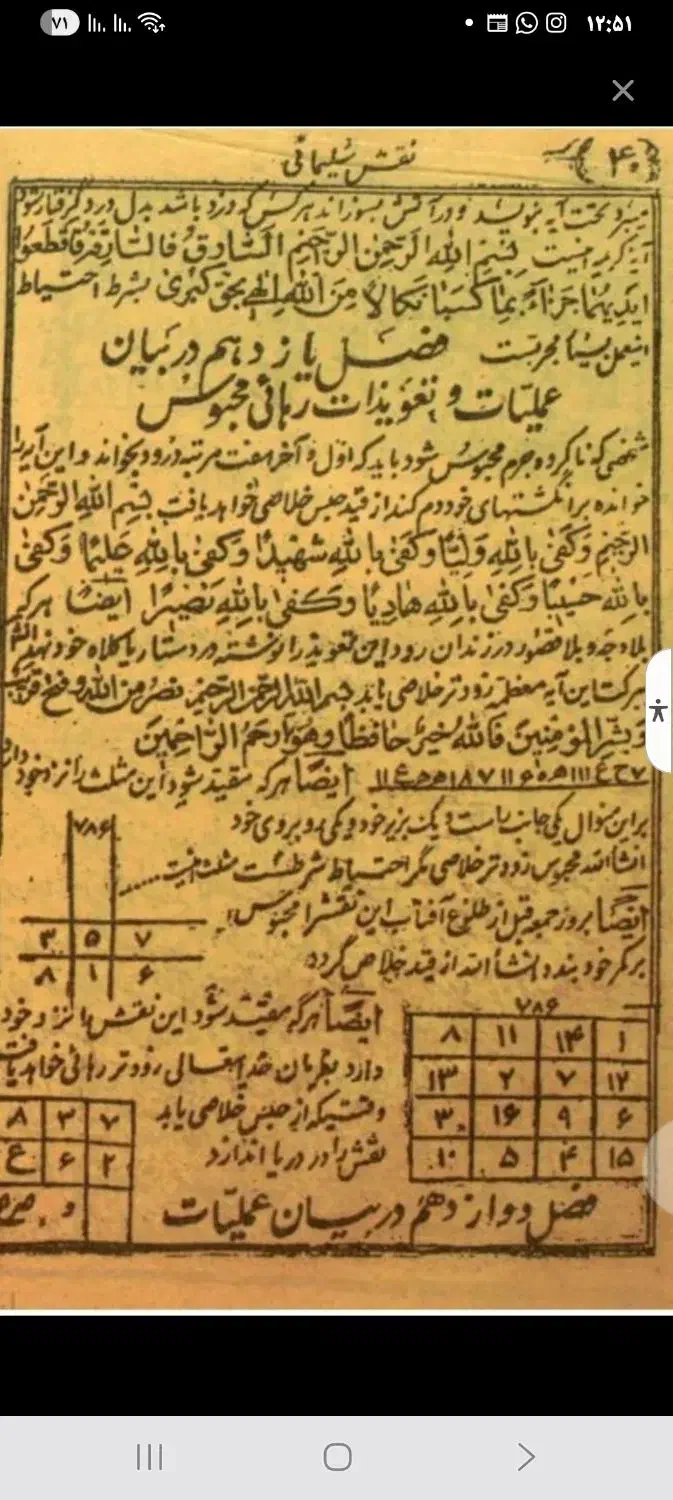 ۷۱
۱۲:۵۱
نقش سلیمانی
۴۰
آیه کریمه اینست بسم الله الرحمن الرحیم السَّارِقُ وَالسَّارِقَةُ فَاقْطَعُوا
اَیْدِیَهُمَا جَزَآءً بِمَا کَسَبَا نَکَالًا مِنَ اللهِ الٰهی بحق کبریٰ بشرط احتیاط
فصل یازدهم در بیان
عملیات و تعویذات رهائی محبوس
شخصی که ناکرده جرم محبوس شود باید که اول و آخر هفت مرتبه درود بخواند و این آیه را
خوانده بر انگشتهای خود دم کند از قید حبس خلاصی خواهد یافت بسم الله الرحمن
الرحیم وَکَفیٰ بِاللهِ وَلِیًّا وَکَفیٰ بِاللهِ شَهِیْدًا وَکَفیٰ بِاللهِ عَلِیْمًا وَکَفیٰ
بِاللهِ حَسِیْبًا وَکَفیٰ بِاللهِ هَادِیًا وَکَفیٰ بِاللهِ نَصِیْرًا ایضًا هر که
بلا وجه و بلا قصور در زندان رود این تعویذ را نوشته در دستار یا کلاه خود نهد
برکت این آیه معظمه زودتر خلاصی یابد بسم الله الرحمن الرحیم نصر من الله و فتح قریب
وَبَشِّرِ الْمُؤْمِنِیْنَ فَاللهُ خَیْرٌ حَافِظًا وَهُوَ اَرْحَمُ الرَّاحِمِیْنَ
ایضًا هر که مقید شود این مثلث را نزد خود دارد
بر این منوال یکی جانب راست و یک بزیر خود و یکی روبروی خود
انشاالله محبوس زودتر خلاصی مگر احتیاط شرطست مثلث اینست
۷۸۶
۳ ۵ ۷
۸ ۱ ۶
ایضًا بروز جمعه قبل از طلوع آفتاب این نقش را محبوس
بر کمر خود بندد انشاالله از قید خلاص گردد
ایضًا هر که مقید شود این نقش را نزد خود
دارد بفرمان خدایتعالی زودتر رهائی خواهد یافت
وقتیکه از حبس خلاصی یابد
نقش را در دریا اندازد
۷۸۶
۸ ۱۱ ۱۴ ۱
۱۳ ۲ ۷ ۱۲
۳ ۱۶ ۹ ۶
۱۰ ۵ ۴ ۱۵
۸ ۳ ۷
۶ ۲
فصل دوازدهم در بیان عملیات